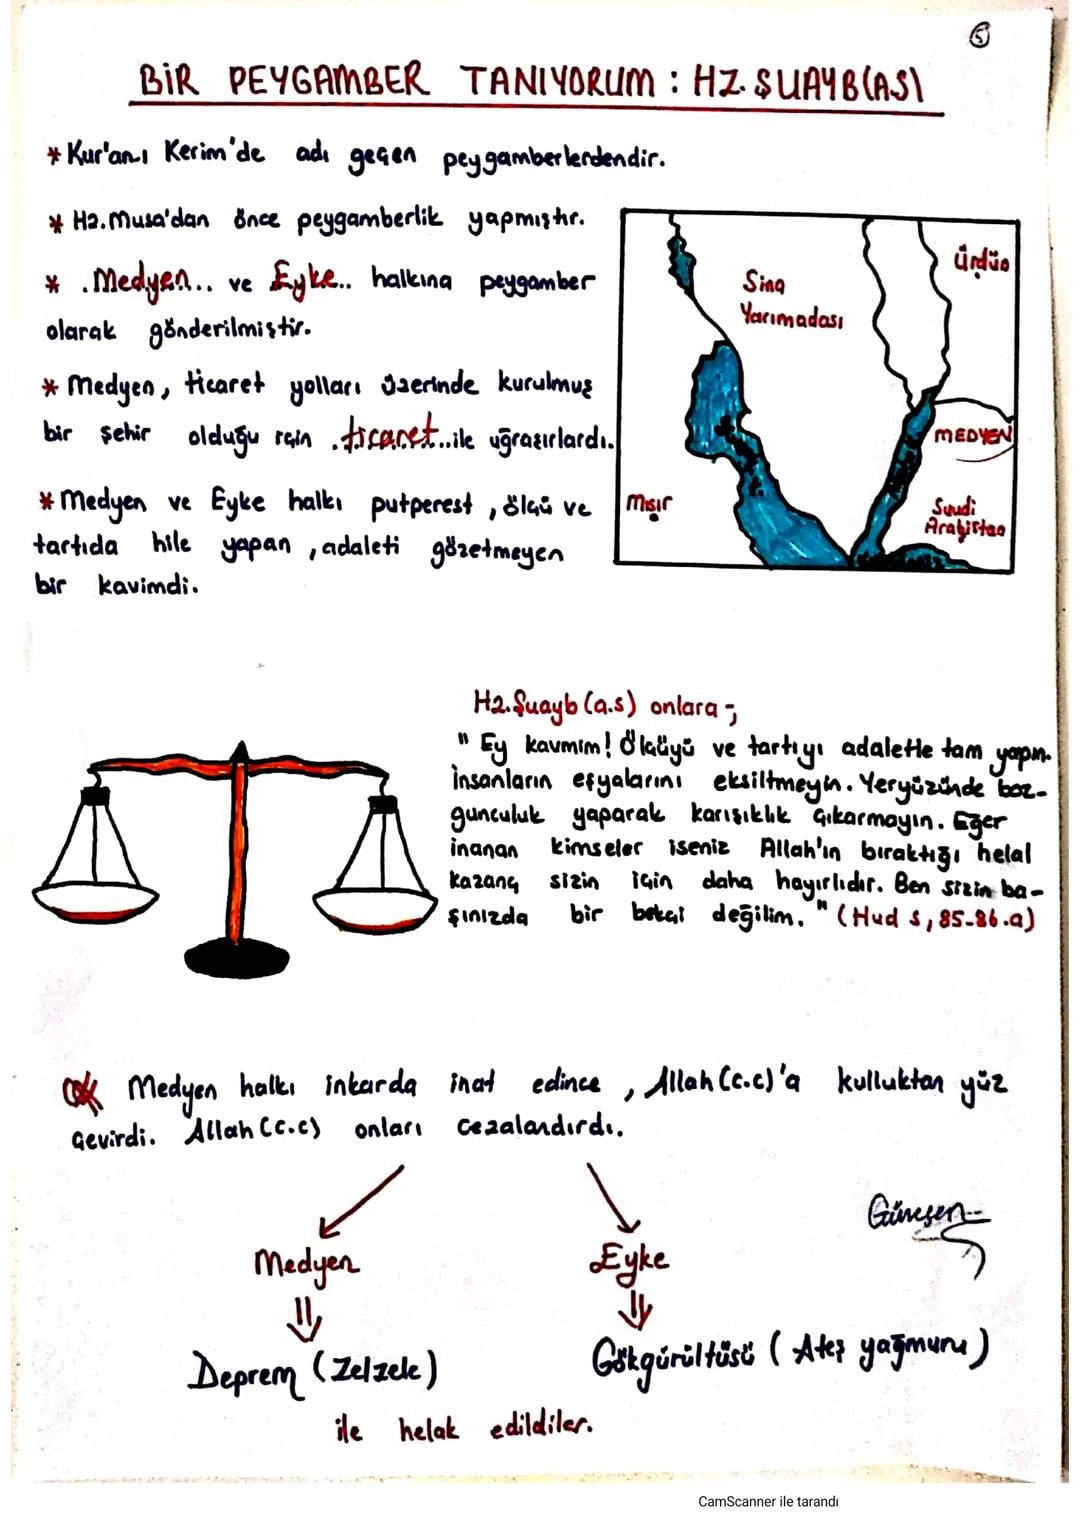 5
BİR PEYGAMBER TANIYORUM : HZ. ŞUAYB(AS)
* Kur'an-ı Kerim'de adı geçen peygamberlerdendir.
* Hz. Musa'dan önce peygamberlik yapmıştır.
* .Medyen.. ve Eyke.. halkına peygamber
olarak gönderilmiştir.
* Medyen, ticaret yolları üzerinde kurulmuş
bir şehir olduğu için .ticaret...ile uğraşırlardı.
* Medyen ve Eyke halkı putperest, ölçü ve
tartıda hile yapan, adaleti gözetmeyen
bir kavimdi.
Sina
Yarımadası
Ürdün
MEDYEN
Mısır
Suudi
Arabistan
Hz. Şuayb (a.s) onlara ;
" Ey kavmim! Ölçüyü ve tartıyı adaletle tam yapın.
İnsanların eşyalarını eksiltmeyin. Yeryüzünde boz-
gunculuk yaparak karışıklık çıkarmayın. Eğer
inanan kimseler iseniz Allah'ın bıraktığı helal
kazanç sizin için daha hayırlıdır. Ben sizin ba-
şınızda bir bekçi değilim. " (Hud s, 85-86.a)
Medyen halkı inkarda inat edince, Allah (c.c)'a kulluktan yüz
çevirdi. Allah (c.c) onları cezalandırdı.
Medyen
Eyke
Deprem (Zelzele)
Gökgürültüsü ( Ateş yağmuru )
ile helak edildiler.
CamScanner ile tarandı